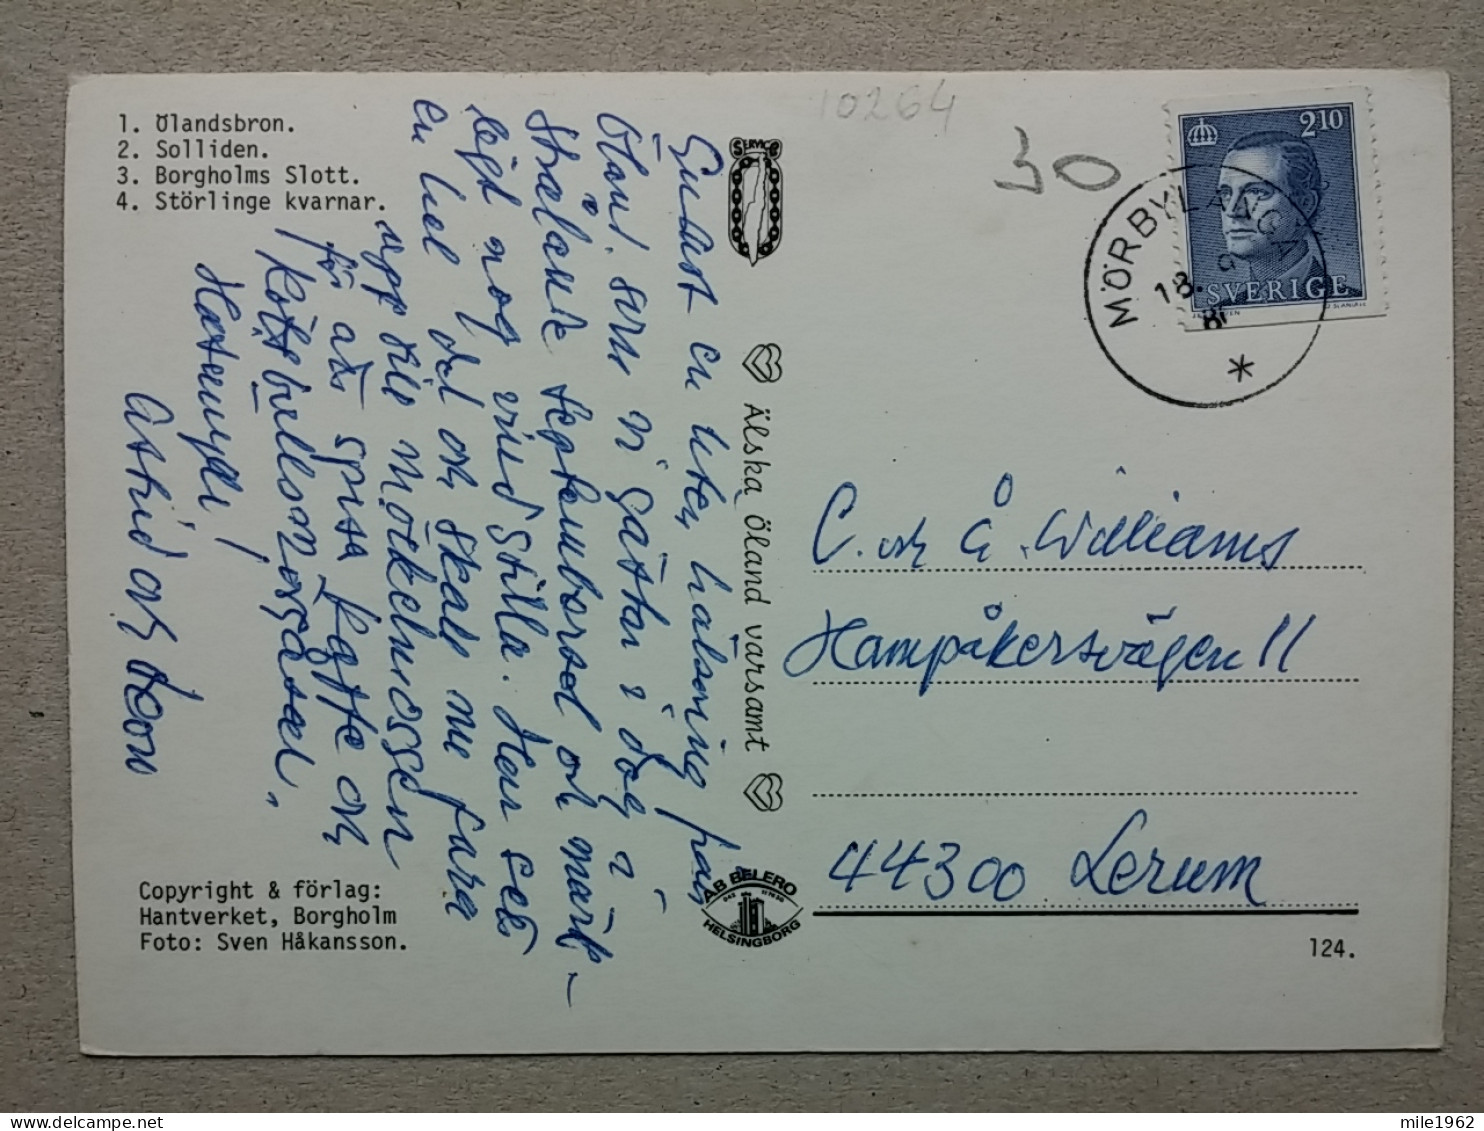 1. Ölandsbron.
2. Solliden.
3. Borgholms Slott.
4. Störlinge kvarnar.
10264
30
SERVICE
2 10
SVERIGE
MÖRBYLÅNGA
18. 9
Endast en liten hälsning från
Öland. som vi gästar i dag i
strålande septembersol och märk-
ligt nog vindstilla. Har sett
en hel del och skall nu fara
upp till Möckelmossen
för att spisa kaffe och
köttbullsmörgåsar.
Hälsningar!
Astrid och
Älska Öland varsamt
C. och Å. Williams
Hampåkersvägen 11
44300 Lerum
Copyright & förlag:
Hantverket, Borgholm
Foto: Sven Håkansson.
AB BELERO
HELSINGBORG
124.
mile1962